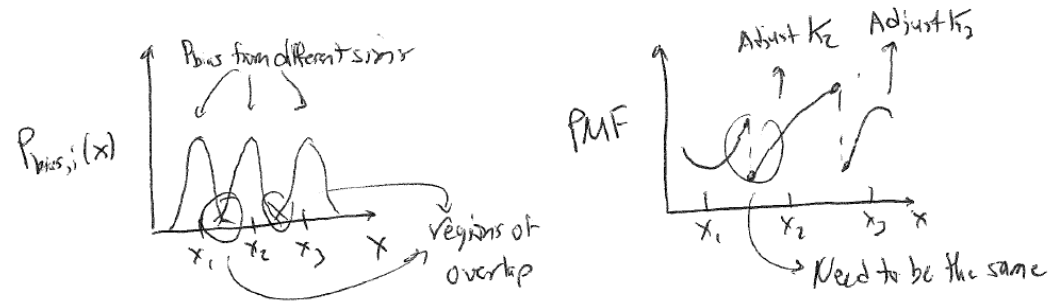 P_bias from different sims
P_bias,i(x)
x₁ x₂ x₃ x
regions of
overlap
Adjust K₂
Adjust K₃
PMF
x₁ x₂ x₃ x
Need to be the same